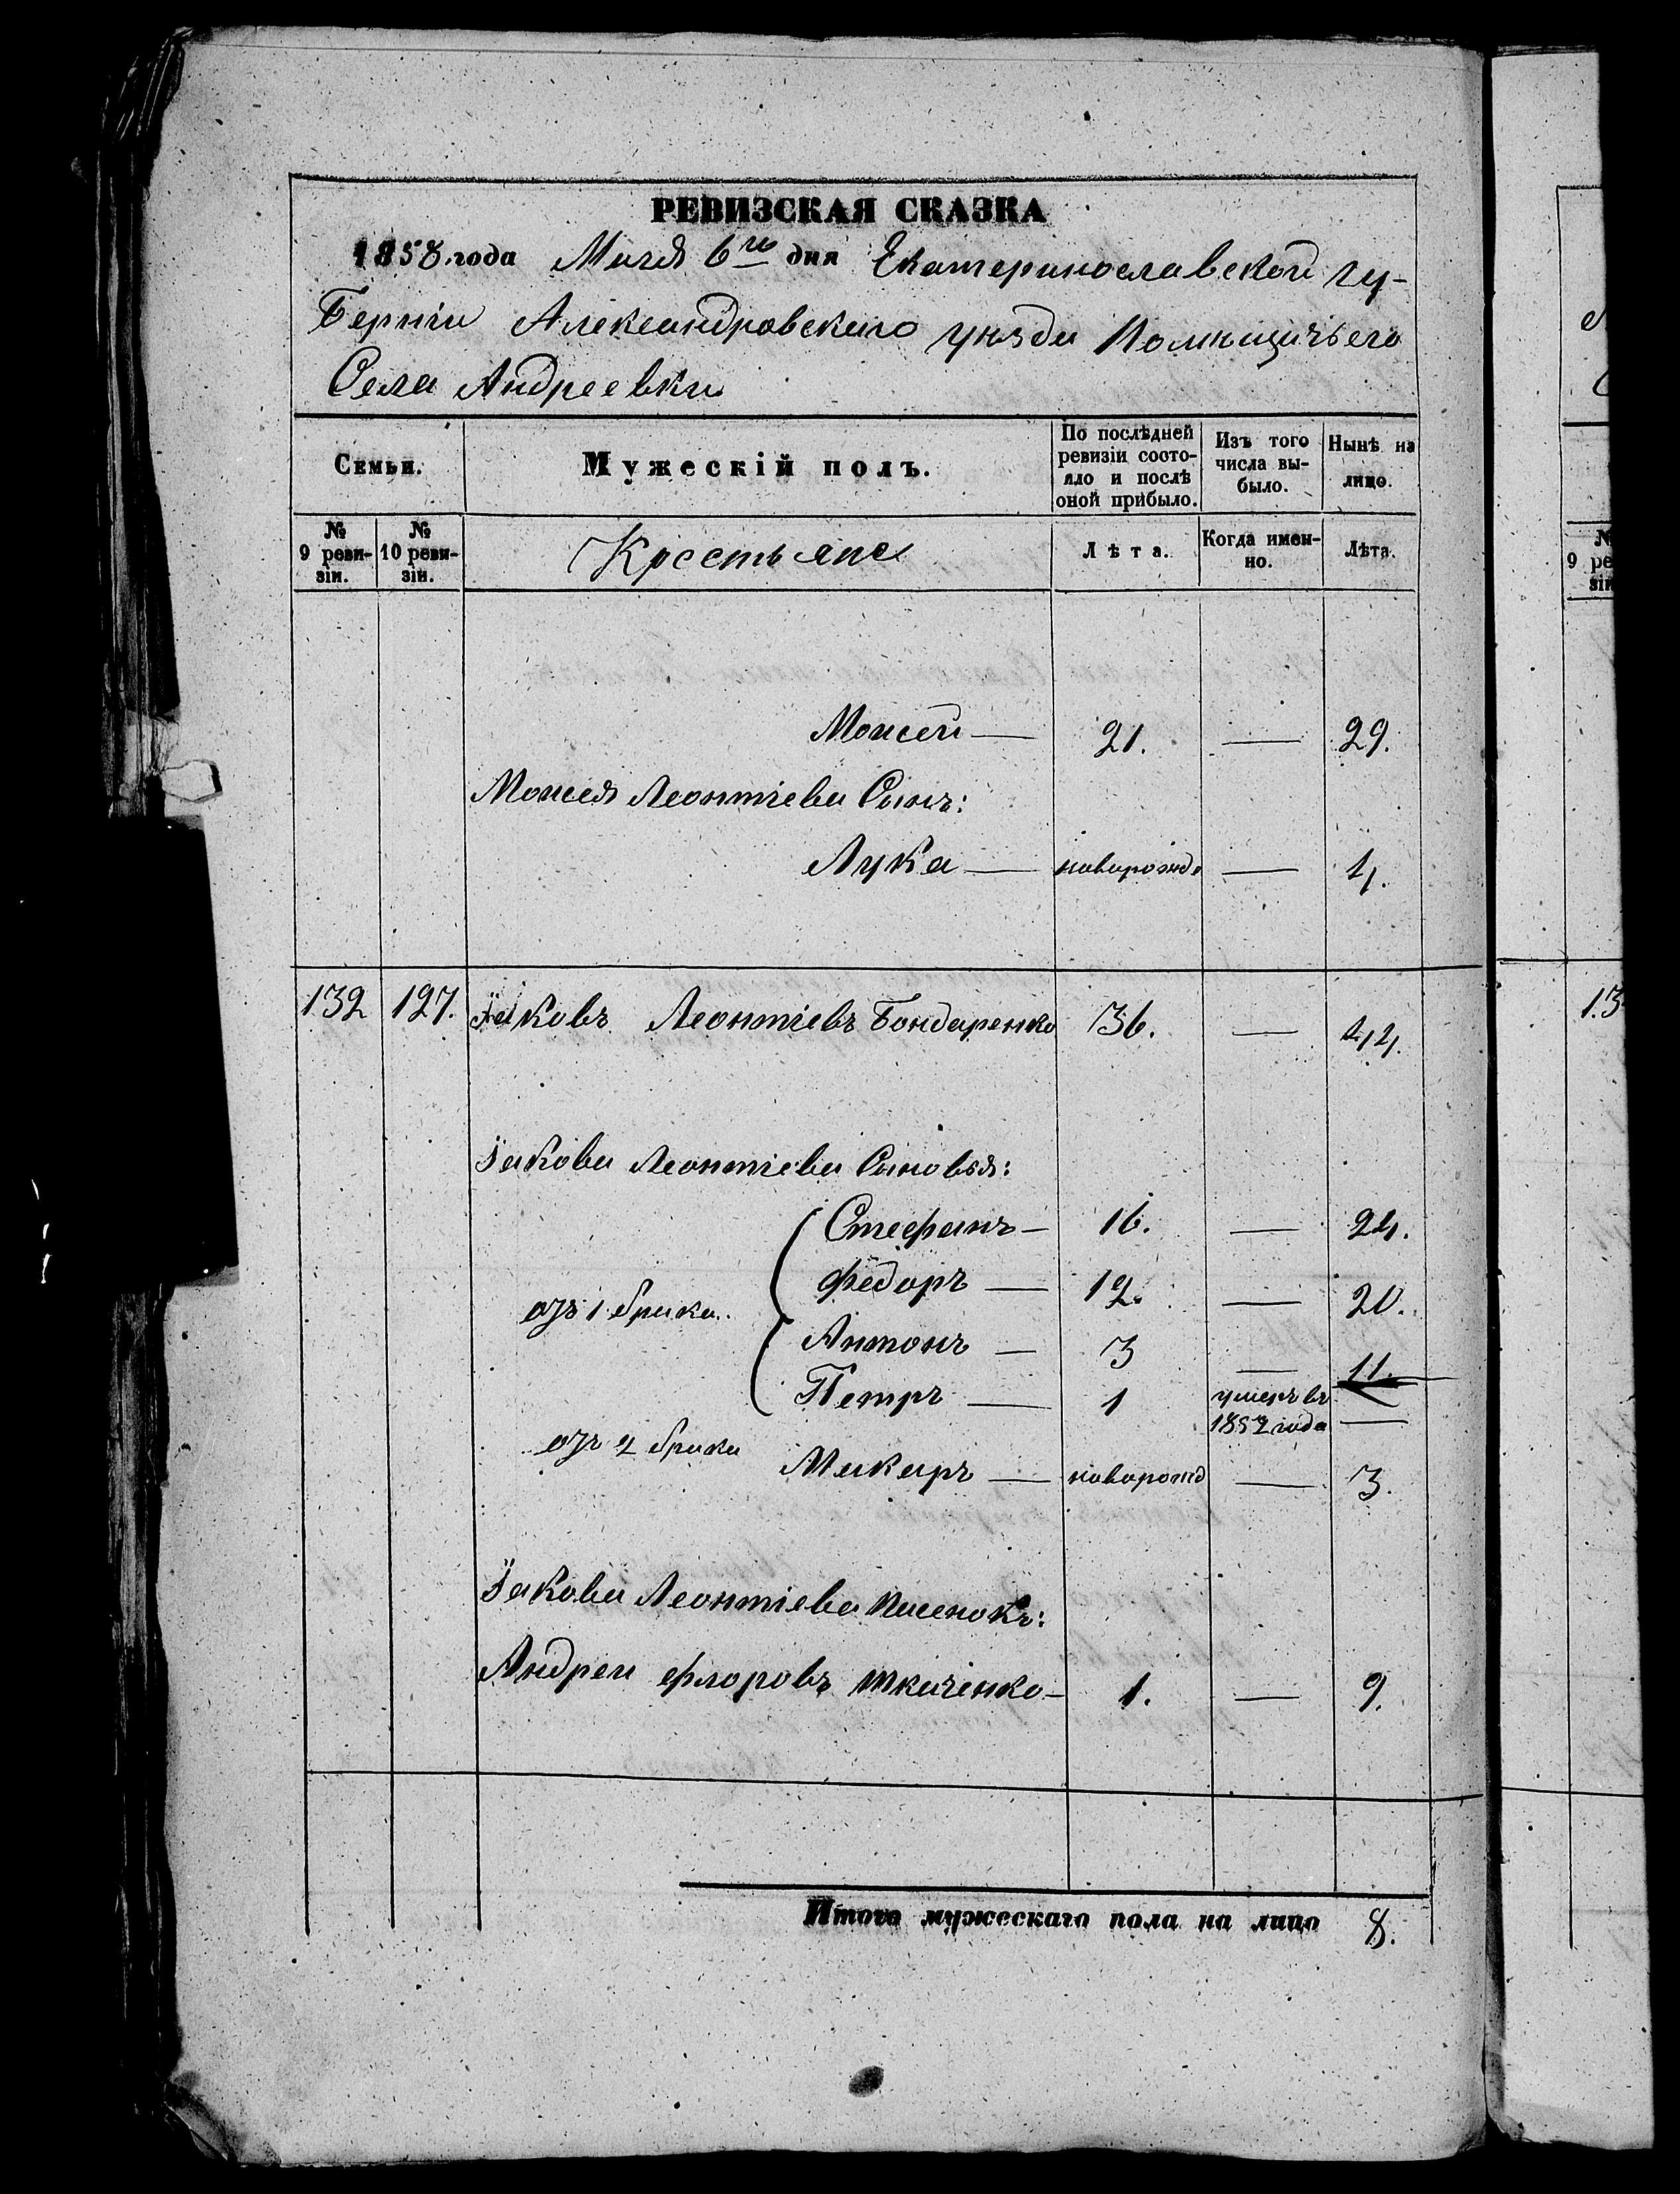 РЕВИЗСКАЯ СКАЗКА
1858 года Мая 6го дня Екатеринославской гу-
берніи Александровскаго уѣзда Помѣщичьего
Села Андреевки
Семьи.
Мужескій полъ.
По послѣдней ревизіи состо-яло и послѣ оной прибыло.
Изъ того числа вы-было.
Нынѣ на лицо.
№ 9 реви-зіи.
№ 10 реви-зіи.
Крестьяне
Лѣта.
Когда имен-но.
Лѣта.
Моисей — 21. — 29.
Моисея Леонтіева Сынъ:
Лука — новорожд. — 4.
132 127. Іаковъ Леонтіевъ Бондаренко 36. — 44.
Іакова Леонтіева Сыновья:
Стефанъ — 16. — 24.
Федоръ — 12. — 20.
отъ 1 брака.
Антонъ — 3 — 11.
Петръ — 1 умеръ въ 1852 года —
отъ 2 брака
Макаръ — новорожд — 3.
Іакова Леонтіева пасенокъ:
Андреи Флоровъ Ткаченко — 1. — 9.
Итого мужескаго пола на лицо 8.
№
9 ре
зіи
13